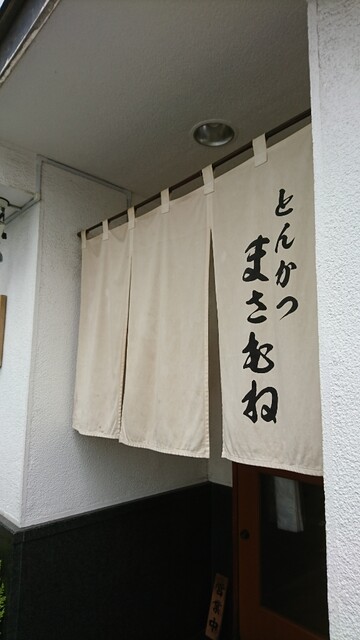 とんかつ
まさむね
営業中